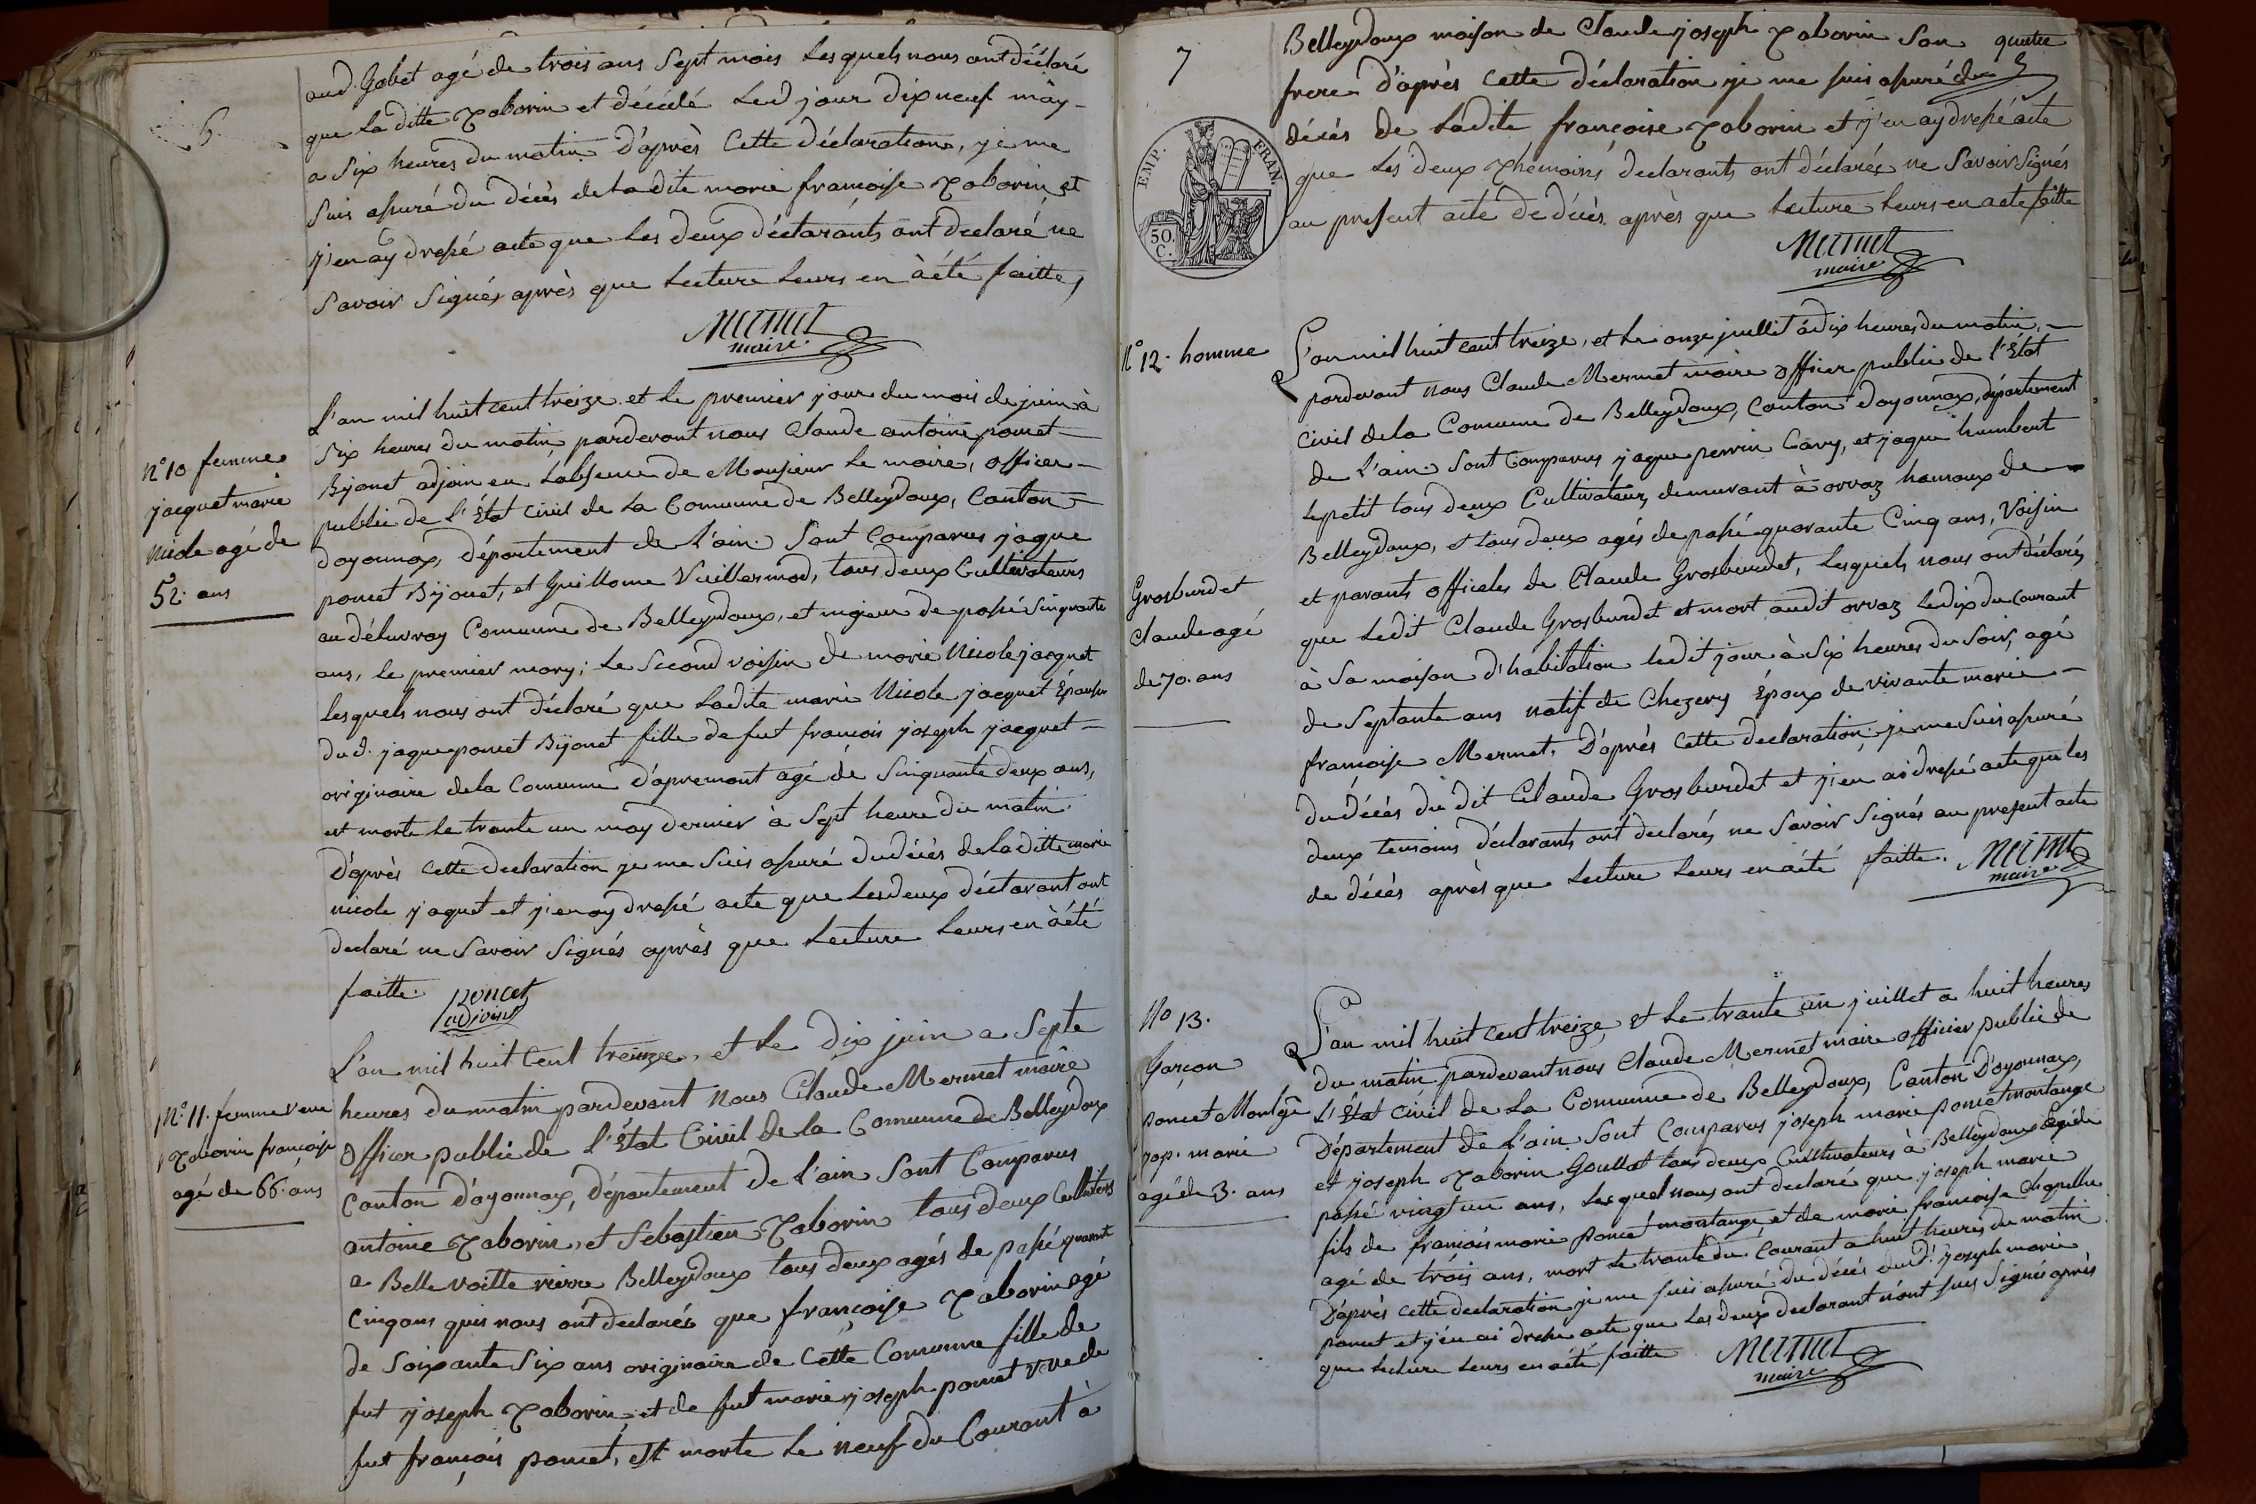 6
aud. Gobet agé de trois ans Sept mois Lesquels nous ont déclaré
que La ditte Taborin et décédé Led jour dix neuf may
a Six heures du matin D'après Cette déclaration, je me
Suis assuré du décès de Ladite marie françoise Taborin et
j'en ay dressé acte que Les deux déclarants ont declaré ne
Savoir Signés après que Lecture Leurs en à été faitte,
Mermet
maire
N° 10 femme
jacquet marie
nicole agé de
52. ans
L'an mil huit cent treize et le premier jour du mois de juin à
Six heures du matin pardevant nous Claude antoine poncet
Bijouet adjoin en L'absence de Monsieur Le maire, officier
public de L'État Civil de La Commune de Belleydoux, Canton
doyonnax, département de L'ain. Sont Comparus jaque
poncet Bijouet, et Guillaume Vuillermod, tous deux Cultivateurs
au délavray Commune de Belleydoux, et majeur de passé Sinquante
ans, le premier mary; Le Second voisin de marie Nicole jacquet
Lesquels nous ont déclaré que Ladite marie Nicole jacquet Épouse
du d. jaque poncet Bijouet fille de fut francois joseph jacquet
originaire de La Commune d'apremont agé de Sinquante deux ans,
est morte Le trante un may dernier à Sept heure du matin.
D'après cette declaration je me Suis assuré du décès de La ditte marie
nicole jaquet et j'en ay dressé acte que Les deux déclarant ont
declaré ne Savoir Signés après que Lecture Leurs en à été
faitte.
Poncet
adjoint
N° 11. femme veuve
Taborin françoise
agé de 66. ans
L'an mil huit Cent treize, et Le dix juin a Septe
heures du matin pardevant Nous Claude Mermet maire
Officier public de L'État Civil de la Commune de Belleydoux
Canton d'oyonnax, département de L'ain Sont Comparus
antoine Taborin, et Sébastien Taborin tous deux
a Belle voitte vierre Belleydoux tous deux agés de passé quarante
Cinq ans quis nous ont declarés que françoise Taborin agé
de Soixante Six ans originaire de Cette Commune fille de
fut joseph Taborin, et de fut marie joseph poncet Vve de
fut françois poncet, est morte Le neuf du Courant à
7
Belleydoux maison de Claude joseph Taborin Son quatre
frere d'après Cette déclaration je me suis assuré du
décés de Ladite françoise Taborin et j'en ay dressé acte
que Les deux Themoins declarants ont déclarés ne Savoir Signés
au present acte de décès après que Lecture Leurs en aeté faitte
Mermet
maire
EMP. FRAN.
50.
C.
N° 12. homme
Grosburdet
Claude agé
de 70. ans
L'an mil huit cent treize, et Le onze juillit à dix heures du matin,
pardevant nous Claude Mermet maire officier public de l'État
Civil de la Commune de Belleydoux, Canton Doyonnax, département
de L'ain. Sont Comparus jaque perrin Cavy, et jaque humbert
Lepetit tous deux Cultivateurs demeurant à orvaz hamaux de
Belleydoux, et tous deux agés de passé quarante Cinq ans, Voisin
et parants officales de Claude Grosburdet, Lesquels nous ont déclarés
que Ledit Claude Grosburdet et mort audit orvaz Le dix du Courant
à Sa maison d'habitation Ledit jour à Six heures du Soir, agé
de Septante ans natif de Chezery Époux de vivante marie
francoise Mermet. D'après Cette declaration je me Suis assuré
du décès du dit Claude Grosburdet et j'en ai dressé acte que les
deux temoins déclarants ont declarés ne Savoir Signés au present acte
de décès après que Lecture Leurs en aété faitte. Mermet
maire
No 13.
Garçon
poncet Montange
jop. marie
agé de 3. ans
L'an mil huit cent treize, et Le trante un juillet a huit heures
du matin pardevant nous Claude Mermet maire officier public de
L'État Civil de La Commune de Belleydoux, Canton D'oyonnax,
Département de L'ain Sont Comparus joseph marie poncet montange
et joseph Taborin Goullat tous deux Cultivateurs à Belleydoux agé de
passé vingt un ans, Lesquel nous ont declaré que joseph marie
fils de francois marie poncet montange, et de marie francoise Chapellu
agé de trois ans, mort Le trante du Courant a huit heures du matin
D'après Cette declaration je me suis assuré du décès dud. joseph marie
poncet et j'en ai dressé acte que Les deux declarant n'ont sus Signés après
que Lecture Leurs en aété faitte
Mermet
maire